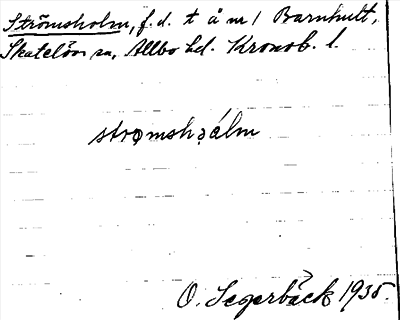 Strömsholm, f.d. t å m / Barnhult,
Skatelövs sn, Allbo hd. Kronob. l.
strømshǫ́lm
O. Segerbäck 1935.